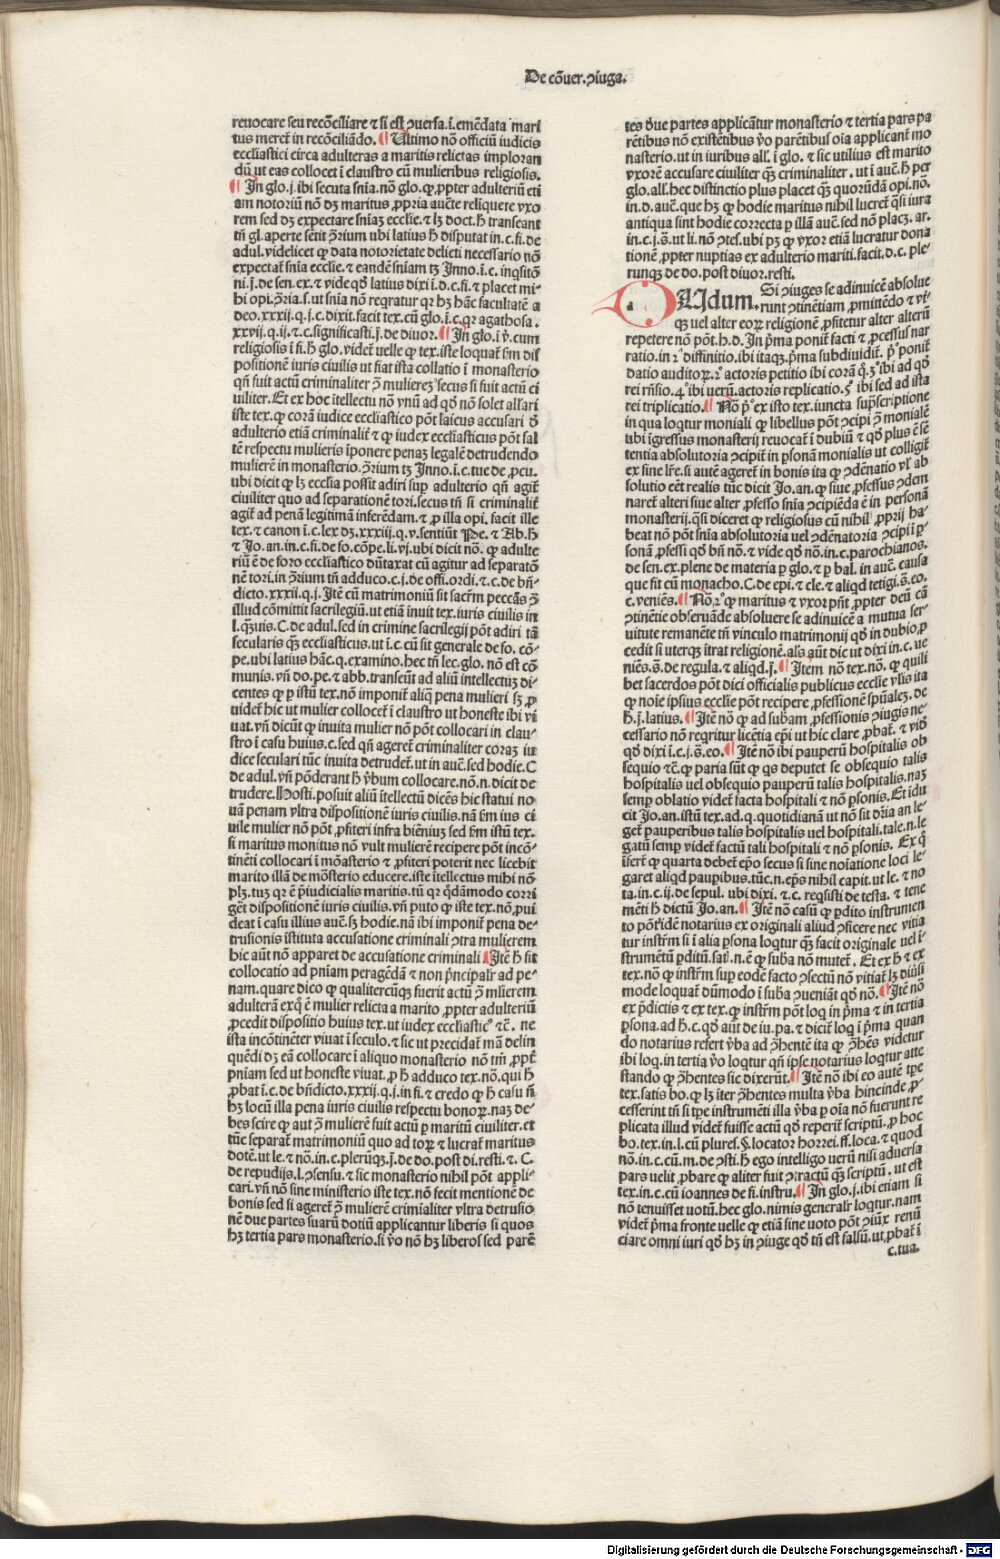 De cõuer.ↄiuga.
reuocare seu recõciliare ⁊ si est ↄuersa.i.emẽdata mari
tus meret̃ in recõciliãdo. Ultimo nõ officiũ iudicis
eccliastici circa adulteras a maritis relictas imploran
dũ ut eas collocet ĩ claustro cũ mulieribus religiosis.
In glo.j.ibi secuta sñia.nõ glo.ꝙ ꝓpter adulteriũ eti
am notoriũ nõ dꝫ maritus ꝓpria aucte reliquere vxo
rem sed dꝫ expectare sñiaꝫ ecclie.⁊ lꝫ doct.h̃ transeant
tñ gl.aperte sẽtit ↄ̃rium ubi latius h̃ disputat in.c.fi.de
adul.videlicet ꝙ data notorietate delicti necessario nõ
expectat̃ sñia ecclie.⁊ eandẽ sñiam tꝫ Inno.ĩ.c.inq̃sitõ
ni.j.de sen.ex.⁊ vide qd̃ latius dixi ĩ.d.c.fi.⁊ placet mi-
hi opi.ↄ̃ria.s.ut sñia nõ reqratur qr hꝫ hãc facultatẽ a
deo.xxxij.q.j.c.dixit.facit tex.cũ glo.ĩ.c.qr agathosa.
xxvij.q.ij.⁊.c.significasti.j.de diuor. In glo.ĩ ṽ.cum
religiosis ĩ fi.h̃ glo.videt̃ uelle ꝙ tex.iste loquat̃ s̃m dis
positionẽ iuris ciuilis ut fiat ista collatio ĩ monasterio
qñ fuit actũ criminaliter ↄ̃ muliereꝫ secus si fuit actũ ci
uiliter.Et ex hoc itellectu nõ vnũ ad qd̃ nõ solet all'ari
iste tex.ꝙ corã iudice eccliastico põt laicus accusari d̃
adulterio etiã criminalit̃ ⁊ ꝙ iudex eccliasticus põt sal
tẽ respectu mulieris ĩponere penaꝫ legalẽ detrudendo
mulierẽ in monasterio.ↄ̃rium tꝫ Inno.ĩ.c.tue de ꝓcu.
ubi dicit ꝙ lꝫ ecclia possit adiri sup adulterio qñ agit̃
ciuiliter quo ad separationẽ tori.secus tñ si criminalit̃
agit̃ ad penã legitimã inferẽdam.⁊ ꝓ illa opi. facit ille
tex.⁊ canon ĩ.c.lex dꝫ.xxxiij.q.v.sentiũt Pe.⁊ Ab.h̃
⁊ Jo.an.in.c.fi.de fo.cõpe.li.vj.ubi dicit nõ. ꝙ adulte
riũ ẽ de foro eccliastico dũtaxat cũ agitur ad separatõ
nẽ tori.in ↄ̃rium tñ adduco.c.j.de offi.ordi.⁊.c.de bñ-
dicto.xxxij.q.j.Itẽ cũ matrimoniũ sit sacr̃m peccãs ↄ̃
illud cõmittit sacrilegiũ.ut etiã inuit tex.iuris ciuilis in
l.q̃uis.C.de adul.sed in crimine sacrilegij põt adiri tã
secularis q̃ꝫ eccliasticus.ut ĩ.c.cũ sit generale de fo. cõ-
pe.ubi latius hãc.q.examino.hec tñ lec.glo. nõ est cõ
munis.vñ do.pe.⁊ abb.transeũt ad aliũ intellectuꝫ di-
centes ꝙ p istũ tex.nõ imponit̃ aliq̃ pena mulieri sꝫ ꝓ
videt̃ hic ut mulier collocet̃ ĩ claustro ut honeste ibi vi
uat.vñ dicũt ꝙ inuita mulier nõ põt collocari in clau-
stro ĩ casu huius.c.sed qñ ageret̃ criminaliter coraꝫ iu
dice seculari tũc inuita detrudet̃.ut in auc̃.sed hodie.C
de adul.vñ põderant h̃ ṽbum collocare.nõ.n.dicit de
trudere.Hosti.posuit aliũ ĩtellectũ dicẽs hic statui no
uã penam vltra dispositionẽ iuris ciuilis.nã s̃m ius ci
uile mulier nõ põt ꝓfiteri infra biẽniuꝫ sed s̃m istũ tex.
si maritus monitus nõ vult mulierẽ recipere põt incõ-
tinẽti collocari ĩ mõasterio ⁊ ꝓfiteri poterit nec licebit
marito illã de mõsterio educere.iste ĩtellectus mihi nõ
plꝫ.tuꝫ qr ẽ p̃iudicialis maritis.tũ qr q̃dãmodo corri
gẽt dispositionẽ iuris ciuilis.vñ puto ꝙ iste tex.nõ ꝓui
deat ĩ casu illius auc̃.sꝫ hodie.nã ibi imponit̃ pena de-
trusionis ĩstituta accusatione criminali ↄtra mulierem
hic aũt nõ apparet de accusatione criminali Itẽ h̃ sit
collocatio ad pñiam peragẽdã ⁊ non p̃ncipalr̃ ad pe-
nam.quare dico ꝙ qualitercũqꝫ fuerit actũ ↄ̃ mlierem
adulterã exq̃ ẽ mulier relicta a marito ꝓpter adulteriũ
ꝓcedit dispositio huius tex.ut iudex eccliastic⁹ ⁊c̃. ne
ista incõtinẽter viuat ĩ seculo.⁊ sic ut precidat̃ mã delin
quẽdi dꝫ eã collocare ĩ aliquo monasterio nõ tm̃ ꝓpt̃
pniam sed ut honeste viuat.ꝓ h̃ adduco tex.nõ.qui h̃
ꝓbat ĩ.c.de bñdicto.xxxij.q.j.in fi.⁊ credo ꝙ h̃ casu ñ
hꝫ locũ illa pena iuris ciuilis respectu bonoꝝ.naꝫ de-
bes scire ꝙ aut ↄ̃ mulierẽ fuit actũ p maritũ ciuiliter.et
tũc separat̃ matrimoniũ quo ad toꝝ ⁊ lucrat̃ maritus
dotẽ.ut le.⁊ nõ.in.c.plerũqꝫ.j.de do.post di.resti.⁊. C.
de repudijs.l.ↄsensu.⁊ sic monasterio nihil põt appli-
cari.vñ nõ sine ministerio iste tex.nõ fecit mentionẽ de
bonis sed si ageret̃ ↄ̃ mulierẽ crimĩaliter vltra detrusio
nẽ due partes suarũ dotiũ applicantur liberis si quos
hꝫ tertia pars monasterio.si ṽo nõ hꝫ liberos sed parẽ
tes due partes applicãtur monasterio ⁊ tertia pars pa
rẽtibus nõ existẽtibus ṽo parẽtibus oĩa applicant̃ mo
nasterio.ut in iuribus all'.ĩ glo.⁊ sic utilius est marito
vxorẽ accusare ciuiliter q̃ꝫ criminaliter.ut ĩ auc̃.h̃ per
glo.all'.hec distinctio plus placet q̃ꝫ quorũdã opi.nõ.
in.d.auc̃.que hꝫ ꝙ hodie maritus nihil lucret̃ q̃si iura
antiqua sint hodie correcta p illã auc̃.sed nõ placꝫ. ar.
in.c.j.ã.ut li.nõ ↄtes.ubi pꝫ ꝙ vxor etiã lucratur dona
tionẽ ꝓpter nuptias ex adulterio mariti.facit.d.c. ple-
runqꝫ de do.post diuor.resti.
QUIdum. Si ↄiuges se adinuicẽ absolue
runt ↄtinẽtiam ꝓmittẽdo ⁊ vẽ-
qꝫ uel alter eoꝝ religionẽ ꝓfitetur alter alterũ
repetere nõ põt.h.d. In p̃ma ponit̃ facti ⁊ ꝓcessus nar
ratio.in 2ª diffinitio.ibi itaqꝫ.p̃ma subdiuidit̃. p̃⁹ ponit̃
datio auditoꝝ.2⁹ actoris petitio ibi corã q̃.3⁹ ibi ad qd̃
rei rñsio.4⁹ ibi uerũ.actoris replicatio.5⁹ ibi sed ad ista
rei triplicatio. Nõ p̃⁹ ex isto tex.iuncta sup̃scriptione
in qua loqtur moniali ꝙ libellus põt ↄcipi ↄ̃ monialẽ
ubi ĩgressus monasterij reuocat̃ ĩ dubiũ ⁊ qd̃ plus ẽ sẽ
tentia absolutoria ↄcipit̃ in p̃sonã monialis ut colligit̃
ex sine lr̃e.si autẽ ageret̃ in bonis ita ꝙ ↄdẽnatio vl' ab
solutio eẽt realis tũc dicit Jo.an.ꝙ siue ꝓfessus ↄdem
naret̃ alteri siue alter ꝓfesso sñia ↄcipiẽda ẽ in personã
monasterij.q̃si diceret ꝙ religiosus cũ nihil ꝓprij ha-
beat nõ põt sñia absolutoria uel ↄdẽnatoria ↄcipi ĩ p̃-
sonã ꝓfessi qd̃ bñ nõ.⁊ vide qd̃ nõ.in.c.parochianos.
de sen.ex.plene de materia p glo.⁊ p bal.in auc̃. causa
que fit cũ monacho.C.de epi.⁊ cle.⁊ aliqd tetigi.ã.eo.
c.veniẽs. Nõ 2⁹ ꝙ maritus ⁊ vxor pñt ꝓpter deũ cã
ↄtinẽtie obseruãde absoluere se adinuicẽ a mutua ser-
uitute remanẽte tñ vinculo matrimonij qd̃ in dubio ꝓ
cedit si uterqꝫ ĩtrat religionẽ.als aũt dic ut dixi in.c. ve
niẽs.ã.de regula.⁊ aliqd.j. Item nõ tex.nõ.ꝙ quili
bet sacerdos põt dici officialis publicus ecclie vl'is ita
ꝙ noĩe ipsius ecclie põt recipere ꝓfessionẽ spũaleꝫ. de
h̃.j.latius. Itẽ nõ ꝙ ad sub̃am ꝓfessionis ↄiugis ne-
cessario nõ reqritur licẽtia epi ut hic clare ꝓbat̃.⁊ vid̃
qd̃ dixi ĩ.c.j.ã.eo. Itẽ nõ ibi pauperũ hospitalis ob
sequio ⁊c̃.ꝙ paria sũt ꝙ qs deputet se obsequio talis
hospitalis uel obsequio pauperũ talis hospitalis.naꝫ
semp oblatio videt̃ facta hospitali ⁊ nõ p̃sonis. Et idu
cit Jo.an.istũ tex.ad.q.quotidianã ut nõ sit dr̃ia an le-
get̃ pauperibus talis hospitalis uel hospitali.tale.n.le
gatũ semp videt̃ factũ tali hospitali ⁊ nõ p̃sonis. Ex q̃
ĩfert̃ ꝙ quarta debet̃ ep̃o secus si sine noĩatione loci le-
garet aliqd paupibus.tũc.n.ep̃s nihil capit.ut le. ⁊ no
ta.in.c.ij.de sepul. ubi dixi.⁊.c.reqsisti de testa. ⁊ tene
mẽti h̃ dictũ Jo.an. Itẽ nõ casũ ꝙ pdito instrumen
to põt idẽ notarius ex originali aliud ↄficere nec vitia
tur instr̃m si ĩ alia p̃sona loqtur q̃ꝫ facit originale uel ĩ-
strumẽtũ pditũ.sat̃.n.ẽ ꝙ sub̃a nõ mutet̃. Et ex h̃ ⁊ ex
tex.nõ ꝙ instr̃m sup eodẽ facto ↄfectũ nõ vitiat̃ lꝫ diũsi
mode loquat̃ dũmodo ĩ sub̃a ↄueniãt qd̃ nõ. Itẽ nõ
ex p̃dictis ⁊ ex tex.ꝙ instr̃m põt loq in p̃ma ⁊ in tertia
p̃sona.ad h̃.c.qd̃ aũt de iu.pa.⁊ dicit̃ loq ĩ p̃ma quan
do notarius refert ṽba ad ↄ̃hentẽ ita ꝙ ↄ̃hẽs videtur
ibi loq.in tertia ṽo loqtur qñ ipse notarius loqtur atte
stando ꝙ ↄ̃hentes sic dixerũt. Itẽ nõ ibi eo autẽ tp̃e
tex.satis bo.ꝙ lꝫ iter ↄ̃hentes multa ṽba hincinde ꝓ-
cesserint tñ si tp̃e instrumẽti illa ṽba p oĩa nõ fuerunt re
plicata illud videt̃ fuisse actũ qd̃ reperit̃ scriptũ.ꝓ hoc
bo.tex.in.l.cũ plures.§.locator horrei.ff.loca.⁊ quod
nõ.in.c.cũ.m.de ↄsti.h̃ ego intelligo uerũ nisi aduersa
pars uelit ꝓbare ꝙ aliter fuit ↄtractũ q̃ꝫ scriptũ. ut est
tex.in.c.cũ ioannes de fi.instru. In glo.j.ibi etiam si
nõ tenuisset uotũ.hec glo.nimis generalr̃ loqtur.nam
videt̃ p̃ma fronte uelle ꝙ etiã sine uoto põt ↄiũx renũ
ciare omni iuri qd̃ hꝫ in ↄiuge qd̃ tñ est falsũ.ut ꝓbat̃ ĩ
c.tua.
Digitalisierung gefördert durch die Deutsche Forschungsgemeinschaft - DFG